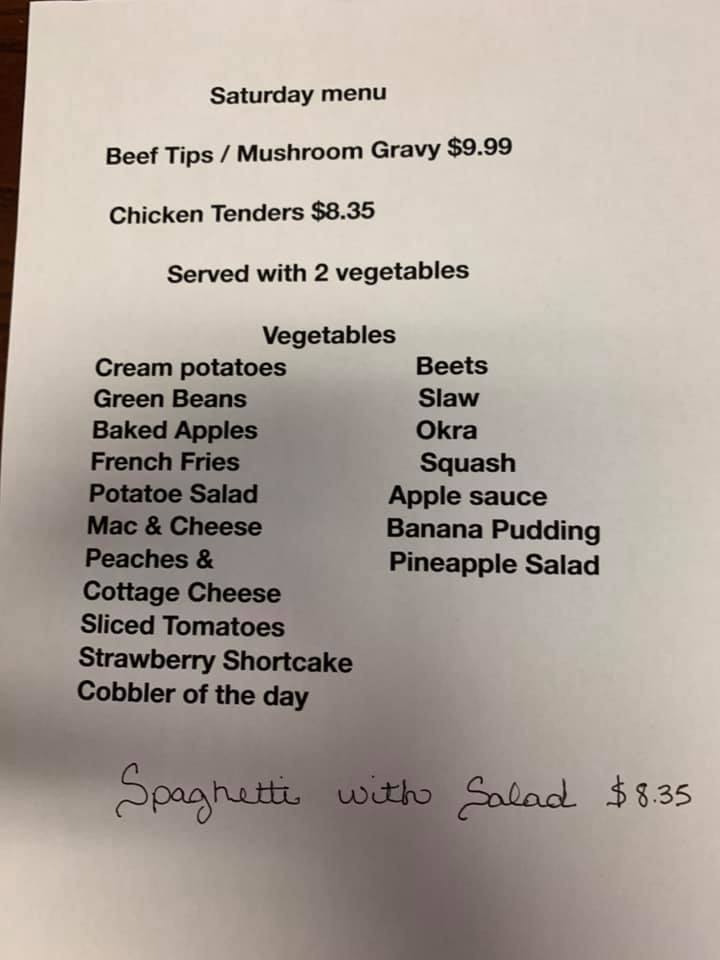 Saturday menu
Beef Tips / Mushroom Gravy $9.99
Chicken Tenders $8.35
Served with 2 vegetables
Vegetables
Cream potatoes
Green Beans
Baked Apples
French Fries
Potatoe Salad
Mac & Cheese
Peaches &
Cottage Cheese
Sliced Tomatoes
Strawberry Shortcake
Cobbler of the day
Beets
Slaw
Okra
Squash
Apple sauce
Banana Pudding
Pineapple Salad
Spaghetti with Salad $8.35